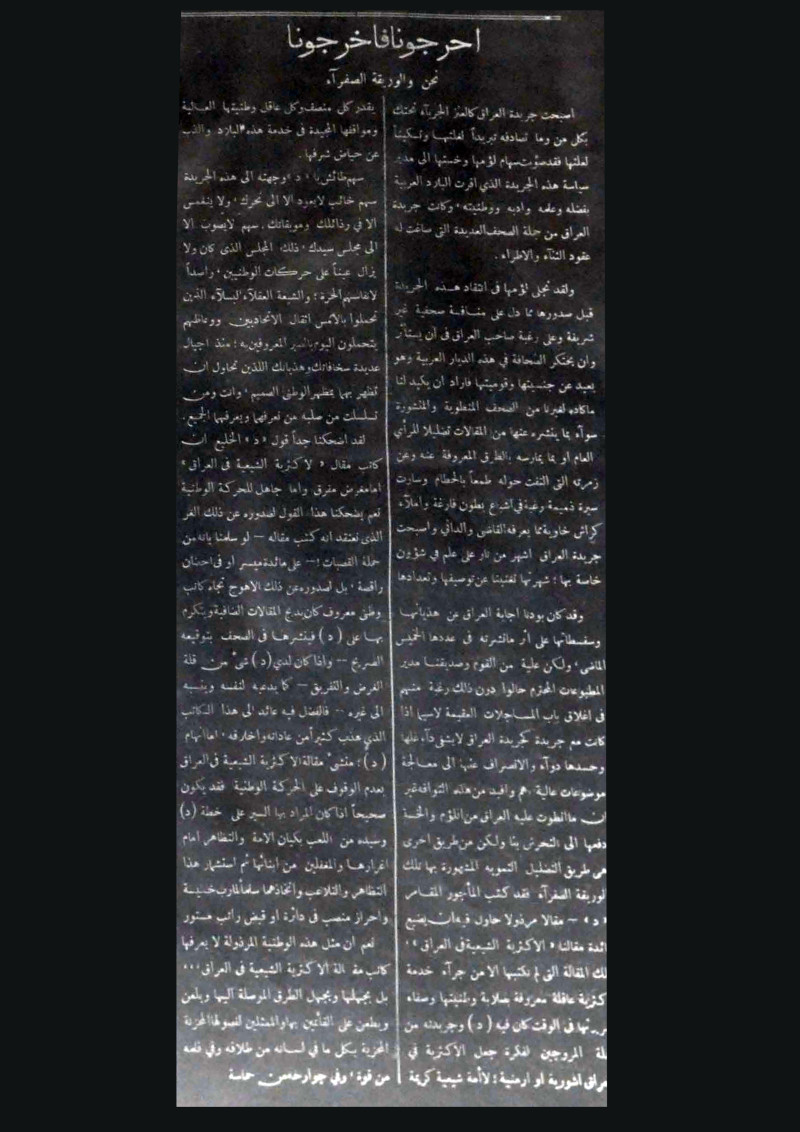 احرجونا فاخرجونا
نحن والوريقة الصفرآء
اصبحت جريدة العراق كالعنز الجربآء تحتك
بكل من وما تصادفه تبريداً لغلتها وتسكيناً
لعلتها فقد صوبت سهام لؤمها وخستها الى مدير
سياسة هذه الجريدة الذي اقرت البلاد العربية
بفضله وعلمه وادبه ووطنيته، وكانت جريدة
العراق من جملة الصحف العديدة التى صاغت له
عقود الثنآء والاطراء .
ولقد تجلى لؤمها فى انتقاد هذه الجريدة
قبل صدورها مما دل على منافسة صحفية غير
شريفة وعلى رغبة صاحب العراق فى أن يستأثر
وان يحتكر الصحافة في هذه الديار العربية وهو
بعيد عن جنسيتها وقوميتها فاراد أن يكيد لنا
ماكاده لغيرنا من الصحف المنطوية والمنشورة
سوآء بما ينشره عنها من المقالات تضليلا للرأي
العام او بما يمارسه الطرق المعروفة عنه وعن
زمرته التى التفت حوله طمعاً بالحطام وسارت
سيرة ذميمة رغبة في اشباع بطون فارغة واملآء
كراش خاوية مما يعرفه القاصى والدانى واصبحت
جريدة العراق اشهر من نار على علم في شؤون
خاصة بها ؛ شهرتها تغنينا عن توصيفها وتعدادها
وقد كان بودنا اجابة العراق عن هذيانها
وسفسطاتها على أثر مانشرته فى عددها الخميس
الماضى، ولكن علية من القوم وصديقنا مدير
المطبوعات المحترم حالوا دون ذلك رغبة منهم
فى اغلاق باب المساجلات العقيمة لاسيما اذا
كانت مع جريدة كجريدة العراق لايشفى دآء غلها
وحسدها دوآء والانصراف عنها الى معالجة
موضوعات عالية اهم وافيد من هذه التوافه غير
ان ماانطوت عليه العراق من اللؤم والخسة
دفعها الى التحرش بنا ولكن من طريق اخرى
هى طريق التضليل التمويه المشهورة بها تلك
لوريقة الصفرآء فقد كتب المأجور
« د » – مقالا مرذولا حاول فيه ان يضيع
ائدة مقالتنا « الاكثرية الشيعية فى العراق »،
لك المقالة التى لم نكتبها الا من جرآء خدمة
كثرية عاقلة معروفة بصلابة وطنيتها وصفاء
تها فى الوقت كان فيه ( د ) وجريدته من
لة المروجين لفكرة جعل الاكثرية في
عراق اشورية او ارمنية ؛ لاأمة شيعية كريمة
يقدر كل منصف وكل عاقل وطنيتها العالية
ومواقفها المجيدة فى خدمة هذه البلاد والذب
عن حياض شرفها .
سهم طائش يا « د » وجهته الى هذه الجريدة
سهم خائب لايعود الا الى نحرك، ولا ينغمس
الا فى رذائلك وموبقاتك . سهم لايصوب الا
الى مجلس سيدك، ذلك المجلس الذى كان ولا
يزال عيناً على حركات الوطنيين، راصداً
لانفاسهم الحرة ؛ والشيعة العقلآء البسلآء الذين
تحملوا بالأمس اثقال الاتحاديين ووعاظهم
يتحملون اليوم المعروفين به ؛ منذ اجيال
عديدة سخافاتك وهذيانك اللذين تحاول ان
تظهر بهما بمظهر الوطنى الصميم، وانت ومن
تسلسلت من صلبه من نعرفها ويعرفهما الجميع.
لقد اضحكنا جداً قول « د » الخليع ان
كاتب مقال « الاكثرية الشيعية فى العراق »
اما مغرض مفرق واما جاهل للحركة الوطنية
نعم يضحكنا هذا القول لصدوره عن ذلك الغر
الذى نعتقد انه كتب مقاله – لو سلمنا بانه من
حملة القصبات !– على مائدة ميسر او فى احضان
راقصة، بل لصدوره عن ذلك الاهوج تجاه كاتب
وطنى معروف كان يدبج المقالات الضافية ويتكرم
بها على ( د ) فينشرها فى الصحف بتوقيعه
الصريح -- واذا كان لدي ( د ) شئ من قلة
الغرض والتفريق – كما يدعيه لنفسه وينسبه
الى غيره -- فالفضل فيه عائد الى هذا الكاتب
الذى هذب كثيراً من عاداته واخلاقه، اما اتهام
( د ) ؛ منشئ مقالة الاكثرية الشيعية فى العراق
بعدم الوقوف على الحركة الوطنية فقد يكون
صحيحاً اذا كان المراد بها السير على خطة ( د )
وسيده من اللعب بكيان الامة والتظاهر امام
اغرارها والمغفلين من ابنائها ثم استثمار هذا
التظاهر والتلاعب واتخاذهما سلماً لمآرب خسيسة
واحراز منصب فى دائرة او قبض راتب مستور
نعم ان مثل هذه الوطنية المرذولة لا يعرفها
كاتب مقالة الاكثرية الشيعية فى العراق ...
بل يجهلها ويجهل الطرق الموصلة اليها ويلعن
ويطعن على القائمين بها والممثلين لفصولها المحزنة
المخزية بكل ما في لسانه من طلاقة وفي قلمه
من قوة، وفي جوارحه من حماسة